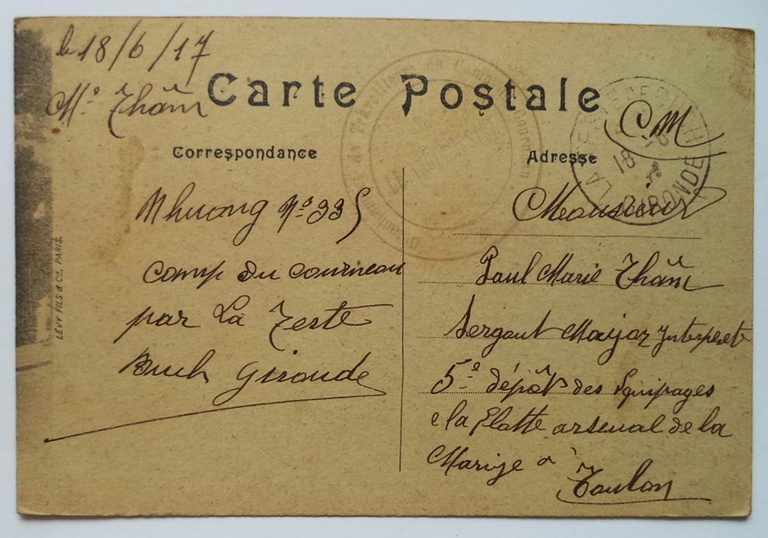 le 18/6/17
Mr Thâm
Carte Postale
CM
Correspondance
Adresse
Nhuong No 335
Camp du Courneau
par La Teste
Buch Gironde
Monsieur
Paul Marie Thâm
Sergent Major Interprete
5e dépôts des Equipages
de la Flotte arsenal de la
Marine à
Toulon
LEVY FILS & Cie, PARIS.
LA TESTE DE BUCH
18 -6
GIRONDE
de Travailleurs du Camp